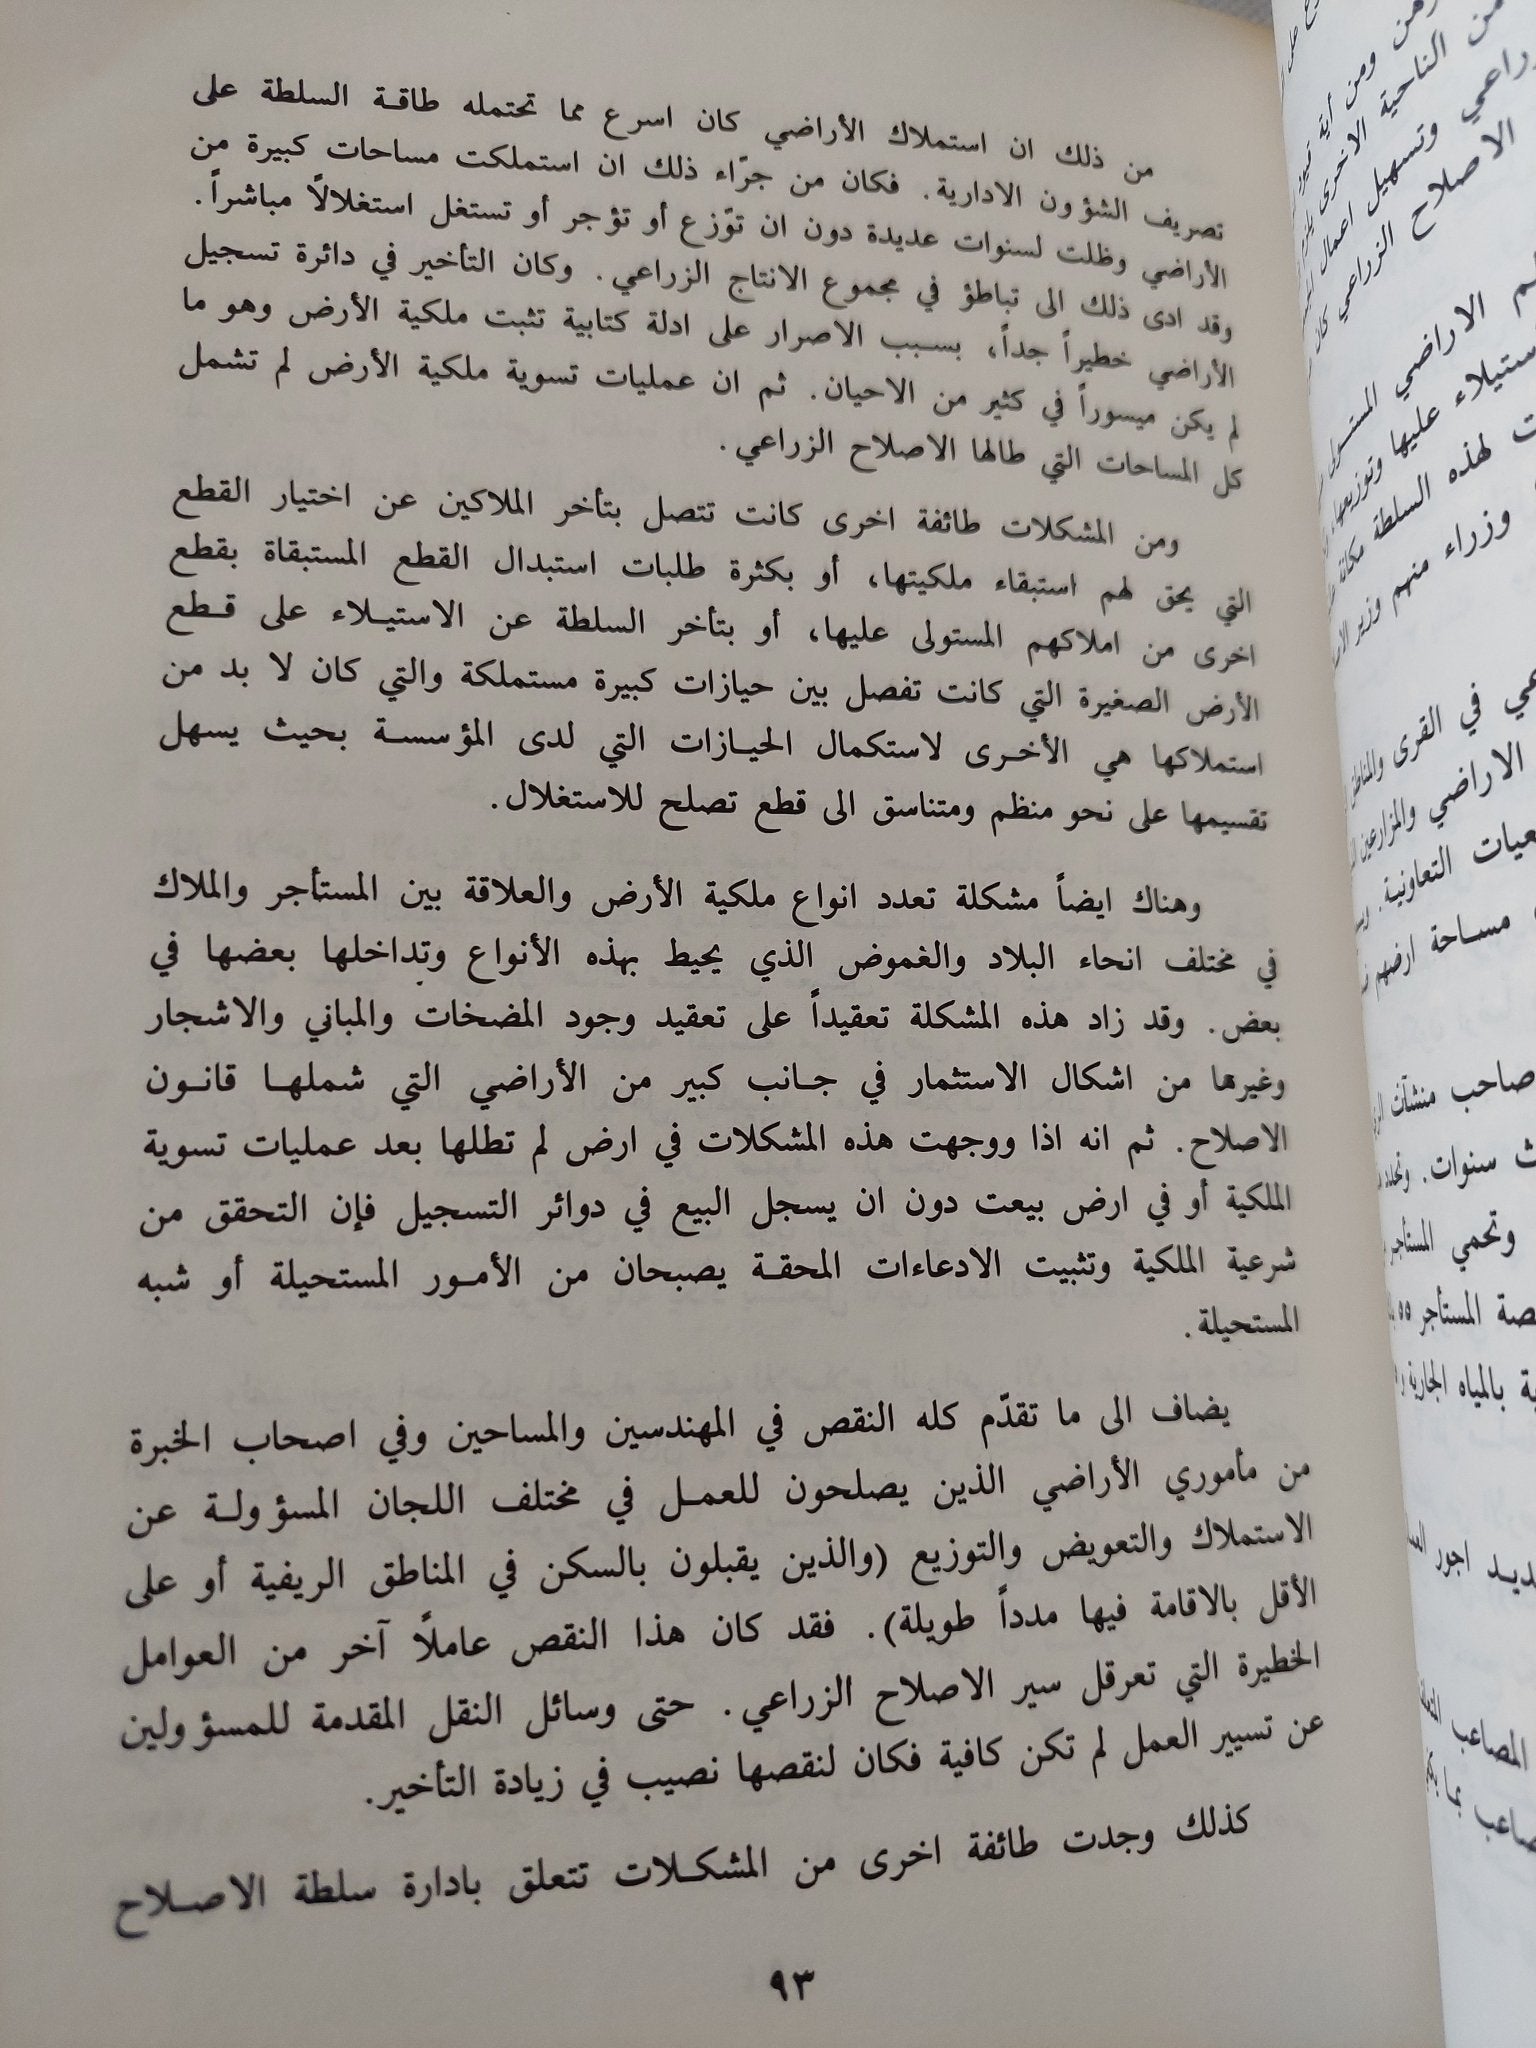 من ذلك ان استملاك الأراضي كان اسرع مما تحتمله طاقة السلطة على
تصريف الشؤون الادارية. فكان من جرّاء ذلك ان استملكت مساحات كبيرة من
الأراضي وظلت لسنوات عديدة دون ان توّزع أو تؤجر أو تستغل استغلالاً مباشراً.
وقد ادى ذلك الى تباطؤ في مجموع الانتاج الزراعي. وكان التأخير في دائرة تسجيل
الأراضي خطيراً جداً، بسبب الاصرار على ادلة كتابية تثبت ملكية الأرض وهو ما
لم يكن ميسوراً في كثير من الاحيان. ثم ان عمليات تسوية ملكية الأرض لم تشمل
كل المساحات التي طالها الاصلاح الزراعي.
ومن المشكلات طائفة اخرى كانت تتصل بتأخر الملاكين عن اختيار القطع
التي يحق لهم استبقاء ملكيتها، أو بكثرة طلبات استبدال القطع المستبقاة بقطع
اخرى من املاكهم المستولى عليها، أو بتأخر السلطة عن الاستيلاء على قطع
الأرض الصغيرة التي كانت تفصل بين حيازات كبيرة مستملكة والتي كان لا بد من
استملاكها هي الأخرى لاستكمال الحيازات التي لدى المؤسسة بحيث يسهل
تقسيمها على نحو منظم ومتناسق الى قطع تصلح للاستغلال.
وهناك ايضاً مشكلة تعدد انواع ملكية الأرض والعلاقة بين المستأجر والملاك
في مختلف انحاء البلاد والغموض الذي يحيط بهذه الأنواع وتداخلها بعضها في
بعض. وقد زاد هذه المشكلة تعقيداً على تعقيد وجود المضخات والمباني والاشجار
وغيرها من اشكال الاستثمار في جانب كبير من الأراضي التي شملها قانون
الاصلاح. ثم انه اذا ووجهت هذه المشكلات في ارض لم تطلها بعد عمليات تسوية
الملكية أو في ارض بيعت دون ان يسجل البيع في دوائر التسجيل فإن التحقق من
شرعية الملكية وتثبيت الادعاءات المحقة يصبحان من الأمور المستحيلة أو شبه
المستحيلة.
يضاف الى ما تقدّم كله النقص في المهندسين والمساحين وفي اصحاب الخبرة
من مأموري الأراضي الذين يصلحون للعمل في مختلف اللجان المسؤولة عن
الاستملاك والتعويض والتوزيع (والذين يقبلون بالسكن في المناطق الريفية أو على
الأقل بالاقامة فيها مدداً طويلة). فقد كان هذا النقص عاملاً آخر من العوامل
الخطيرة التي تعرقل سير الاصلاح الزراعي. حتى وسائل النقل المقدمة للمسؤولين
عن تسيير العمل لم تكن كافية فكان لنقصها نصيب في زيادة التأخير.
كذلك وجدت طائفة اخرى من المشكلات تتعلق بادارة سلطة الاصلاح
٩٣
ومن أية
من الناحية الاخرى
وتسهيل اعمال
الاصلاح الزراعي كان
الاراضي
عليها وتوزيعها
لهذه السلطة مكانة
وزراء منهم وزير
في القرى والمناطق
الاراضي والمزارعين
التعاونية.
مساحة ارضهم
صاحب منشآت
سنوات.
وتحمي المستأجر
المستأجر ٥٥
بالمياه الجارية
اجور
المصاعب
بما